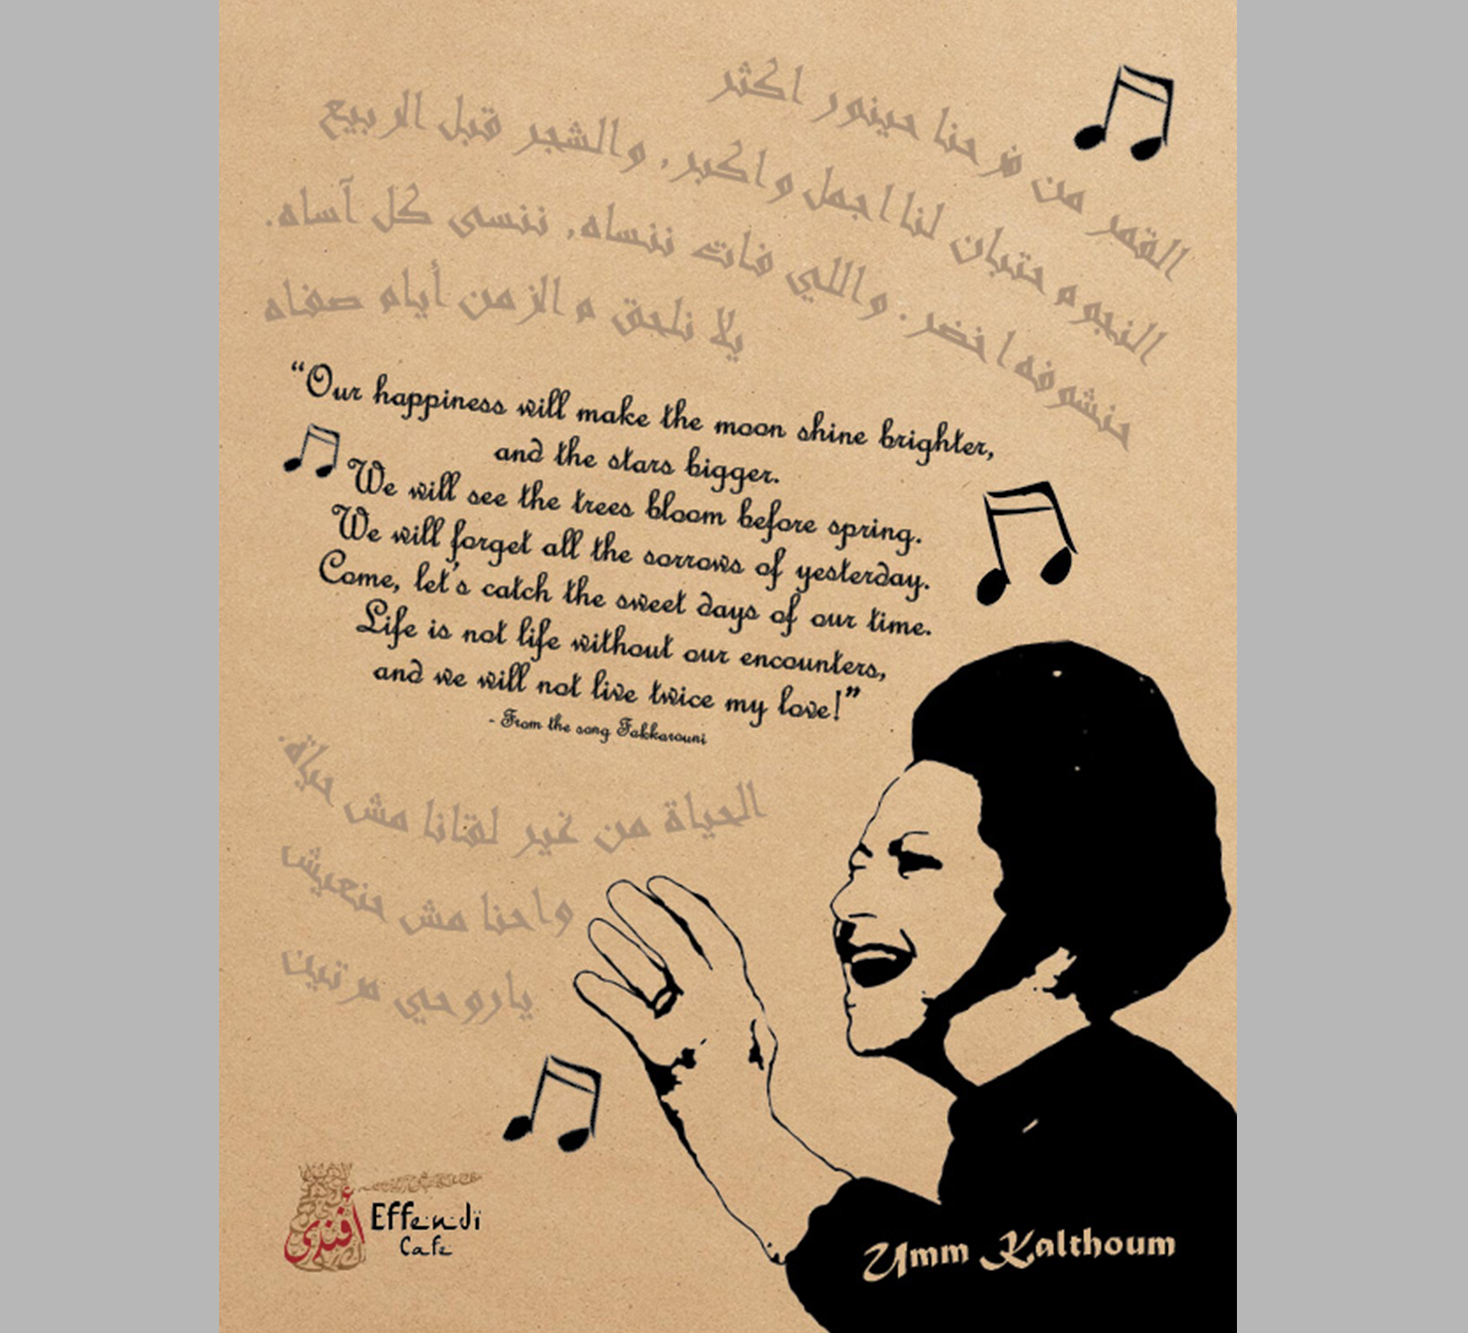 القمر من فرحنا حينور اكثر
النجوم حتبان لنا اجمل واكبر، والشجر قبل الربيع
حنشوفه اخضر. واللي فات ننساه، ننسى كل آساه.
يلا نلحق م الزمن أيام صفاه
“Our happiness will make the moon shine brighter,
and the stars bigger.
We will see the trees bloom before spring.
We will forget all the sorrows of yesterday.
Come, let's catch the sweet days of our time.
Life is not life without our encounters,
and we will not live twice my love!”
- From the song Fakkarouni
الحياة من غير لقانا مش حياة.
واحنا مش حنعيش
ياروحي مرتين
أفندي
Effendi
Cafe
Umm Kalthoum